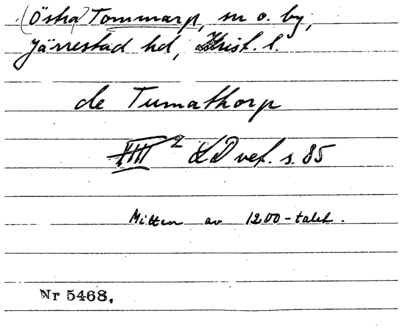 (Östra) Tommarp, sn o. by,
Järrestad hd, Krist. l.
de Tumathorp
XIII 2 LD vet. s. 85
Mitten av 1200-talet.
Nr 5468.